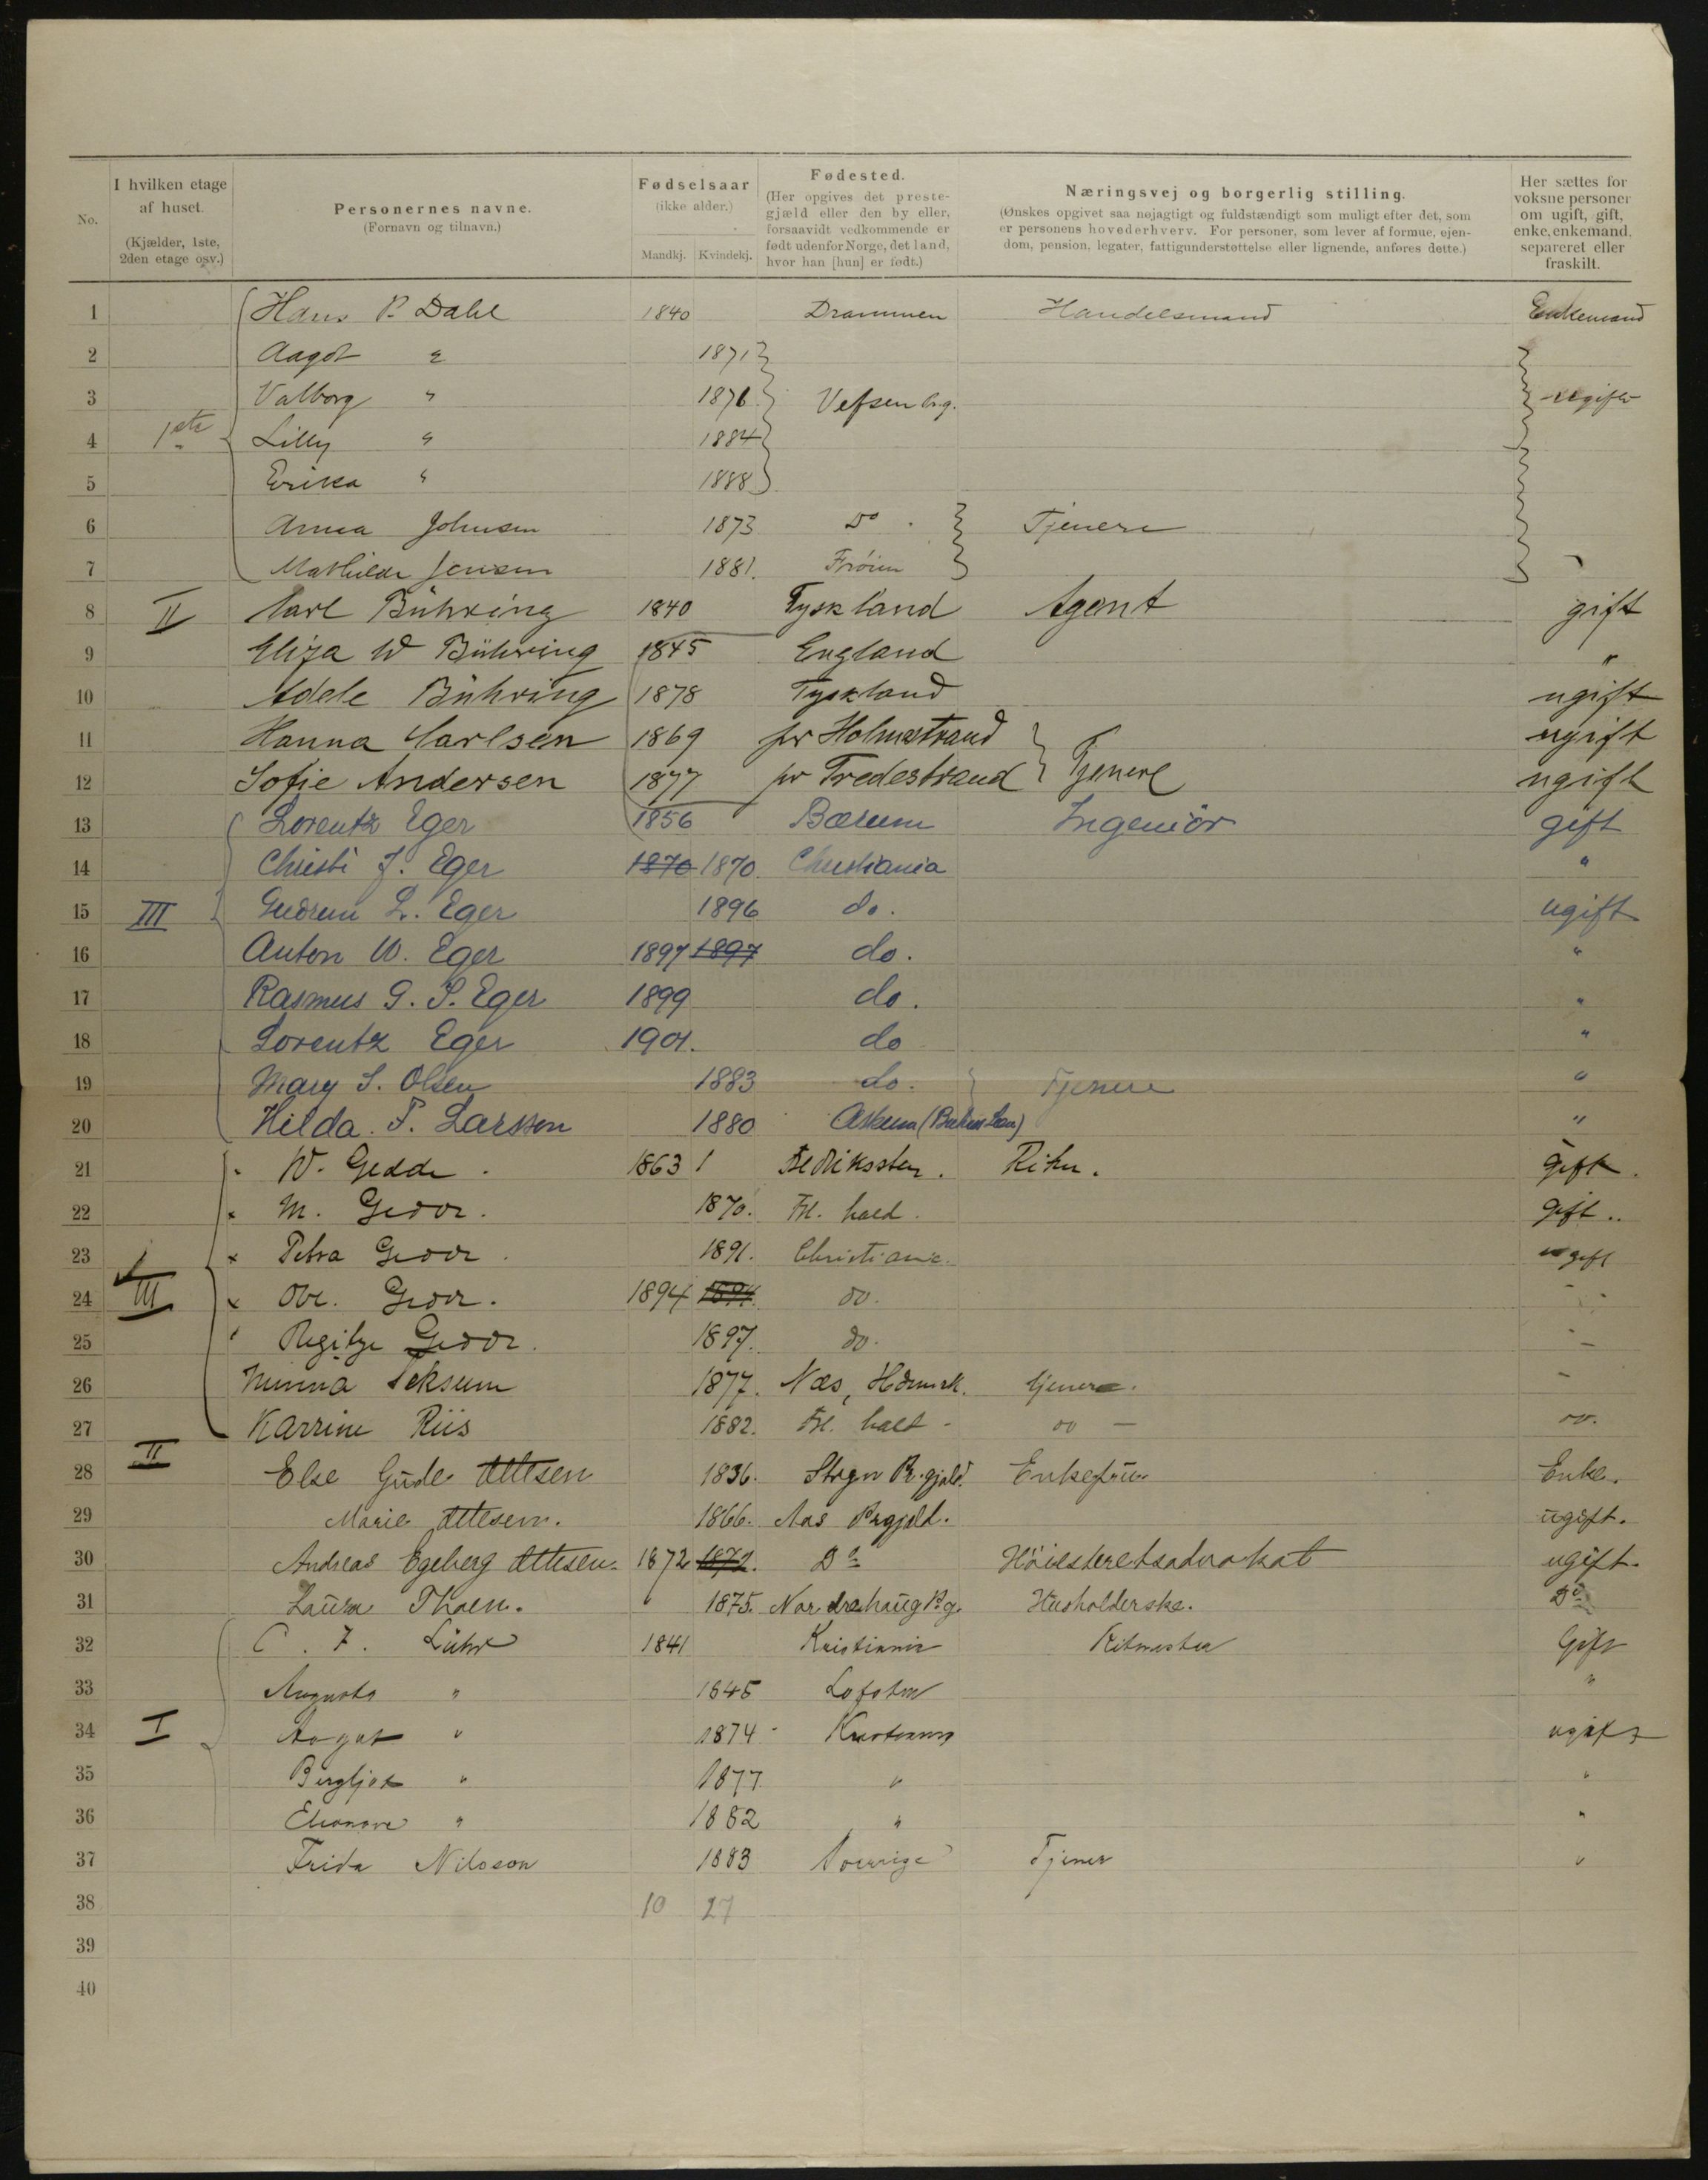 No.
I hvilken etage af huset. (Kjælder, 1ste, 2den etage osv.)
Personernes navne. (Fornavn og tilnavn.)
Fødselsaar (ikke alder.) Mandkj. Kvindekj.
Fødested. (Her opgives det prestegjæld eller den by eller, forsaavidt vedkommende er født udenfor Norge, det land, hvor han [hun] er født.)
Næringsvej og borgerlig stilling. (Ønskes opgivet saa nøjagtigt og fuldstændigt som muligt efter det, som er personens hovederhverv. For personer, som lever af formue, ejendom, pension, legater, fattigunderstøttelse eller lignende, anføres dette.)
Her sættes for voksne personer om ugift, gift, enke, enkemand, separeret eller fraskilt.
1 Hans P. Dahl 1840 Drammen Handelsmand Enkemand
2 Aagot " 1871
3 Valborg " 1876 Vefsen Prg. ugifte
4 1ste Lilly " 1884
5 Erika " 1888
6 Anna Johnsen 1873 Do. Tjenere
7 Mathilde Jensen 1881.
8 II Carl Bühring 1840 Tyskland Agent gift
9 Eliza W Bühring 1845 England "
10 Adele Bühring 1878 Tyskland ugift
11 Hanna Carlsen 1869 pr Holmestrand ugift
12 Sofie Andersen 1877 pr Tredestrand Tjenere ugift
13 Lorentz Eger 1856 Bærum Ingeniör gift
14 Christi J. Eger 1870 1870. Christiania "
15 III Gudrun L. Eger 1896 do. ugift
16 Anton W. Eger 1897 1897 do. "
17 Rasmus G. S. Eger 1899 do. "
18 Lorentz Eger 1901. do "
19 Mary S. Olsen 1883 do. Tjenere "
20 Hilda F. Larsson 1880 "
21 W. Gedde. 1863 1 Fredriksten. Ritm. gift.
22 M. Gedde. 1870. Fr. hald. gift..
23 Petra Gedde. 1891. Christiania. ugift
24 III Ove. Gedde. 1894 1894. do. -
25 Regitze Gedde. 1897. do. -
26 Minna 1877. Næs, Hdmrk. tjener. -
27 Karrine Riis 1882. Fr. hald - do - do.
28 II Else Gude Ottesen 1836. Prgjæld. Enkefru Enke.
29 Marie Ottesen. 1866. Aas Prgjæld. ugift.
30 Andreas Egeberg Ottesen. 1872 1872. Do Höiesteretsadvokat ugift.
31 Laura Thoen. 1875. Norderhaug Pg. Husholderske. Do
32 C. F. Lühr 1841 Kristiania Ritmester Gift
33 Augusta " 1845 Lofoten "
34 I Aagot " 1874 Kristiania ugift
35 Bergljot " 1877 " "
36 Eleonore " 1882 " "
37 Frida Nilsson 1883 Sverrige Tjener "
38 10 27
39
40